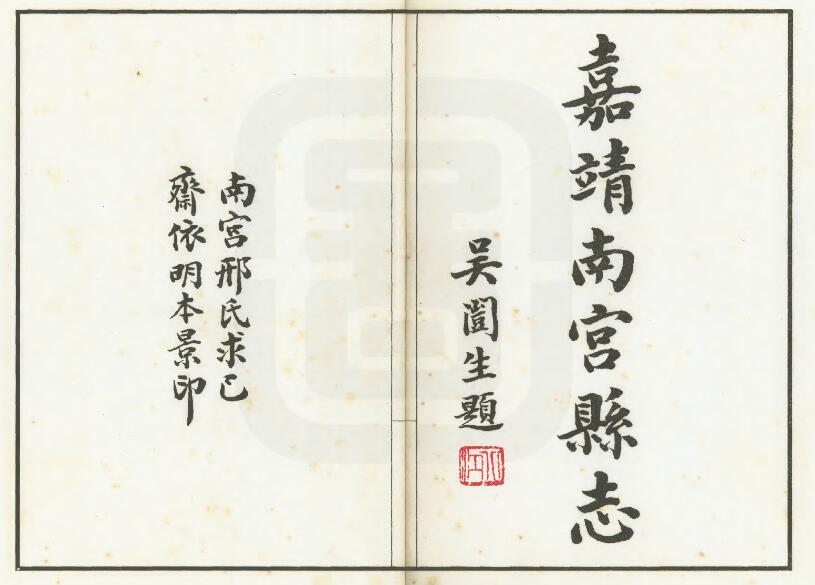 嘉靖南宮縣志
吴闓生題
南宮邢氏求己
齋依明本景印